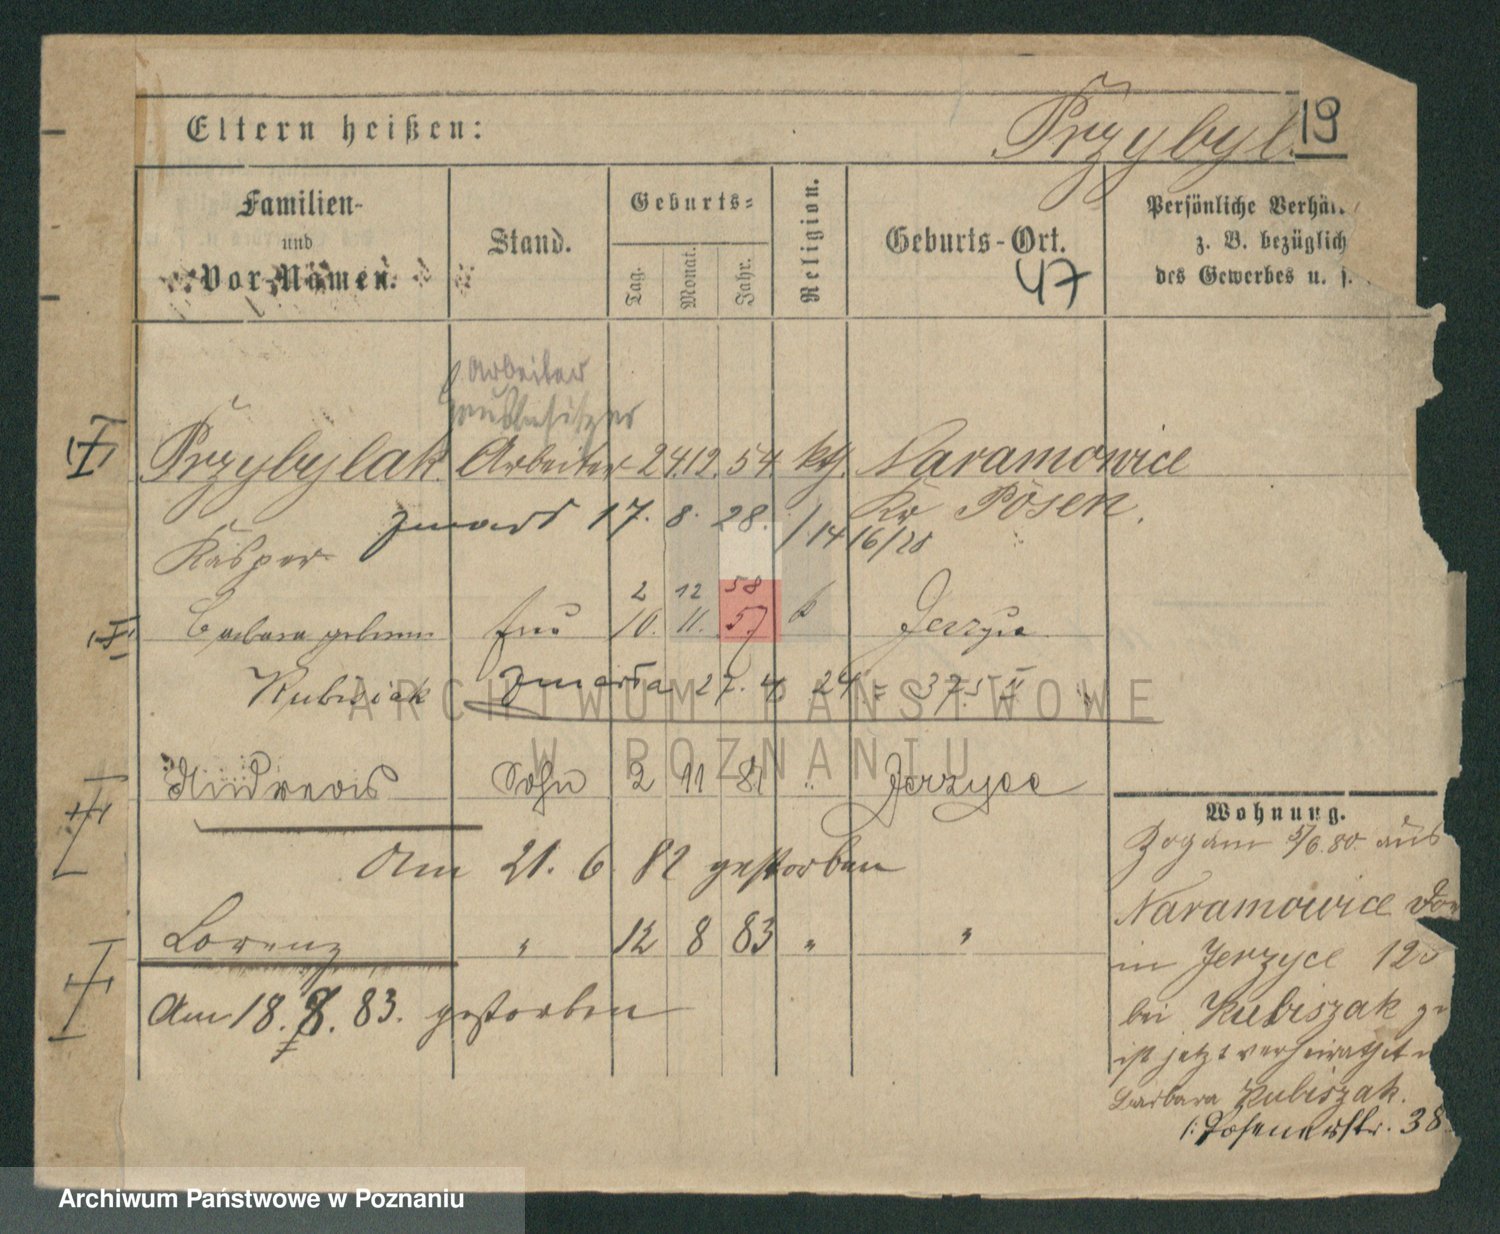 Eltern heißen:
Przybyl.
19
Familien-
und
Vor-Namen.
Stand.
Geburts-
Tag.
Monat.
Jahr.
Religion.
Geburts-Ort.
47
Persönliche Verhäl
z. B. bezüglich
des Gewerbes u. s.
Arbeiter
Hausbesitzer
Przybylak Arbeiter 24. 12. 54 kth. Naramowice
Kr Posen.
zmarł 17. 8. 28. / 14 16/28
Kasper
2 12 58
Barbara geborene Frau 10. 11. 57 k Jerzyce
Kubiszak zmarła 27. 4. 24 = 37.
Andreas Sohn 2 11 81 " Jerzyce
Am 21. 6. 82 gestorben
Lorenz " 12 8 83 " "
Am 18. 8. 83. gestorben
Wohnung.
Zog am 5/6.80. aus
Naramowice
in Jerzyce 120
bei Kubiszak
ist jetzt verheirathet
Barbara Kubiszak.
Posenerstr. 38
ARCHIWUM PAŃSTWOWE
W POZNANIU
Archiwum Państwowe w Poznaniu